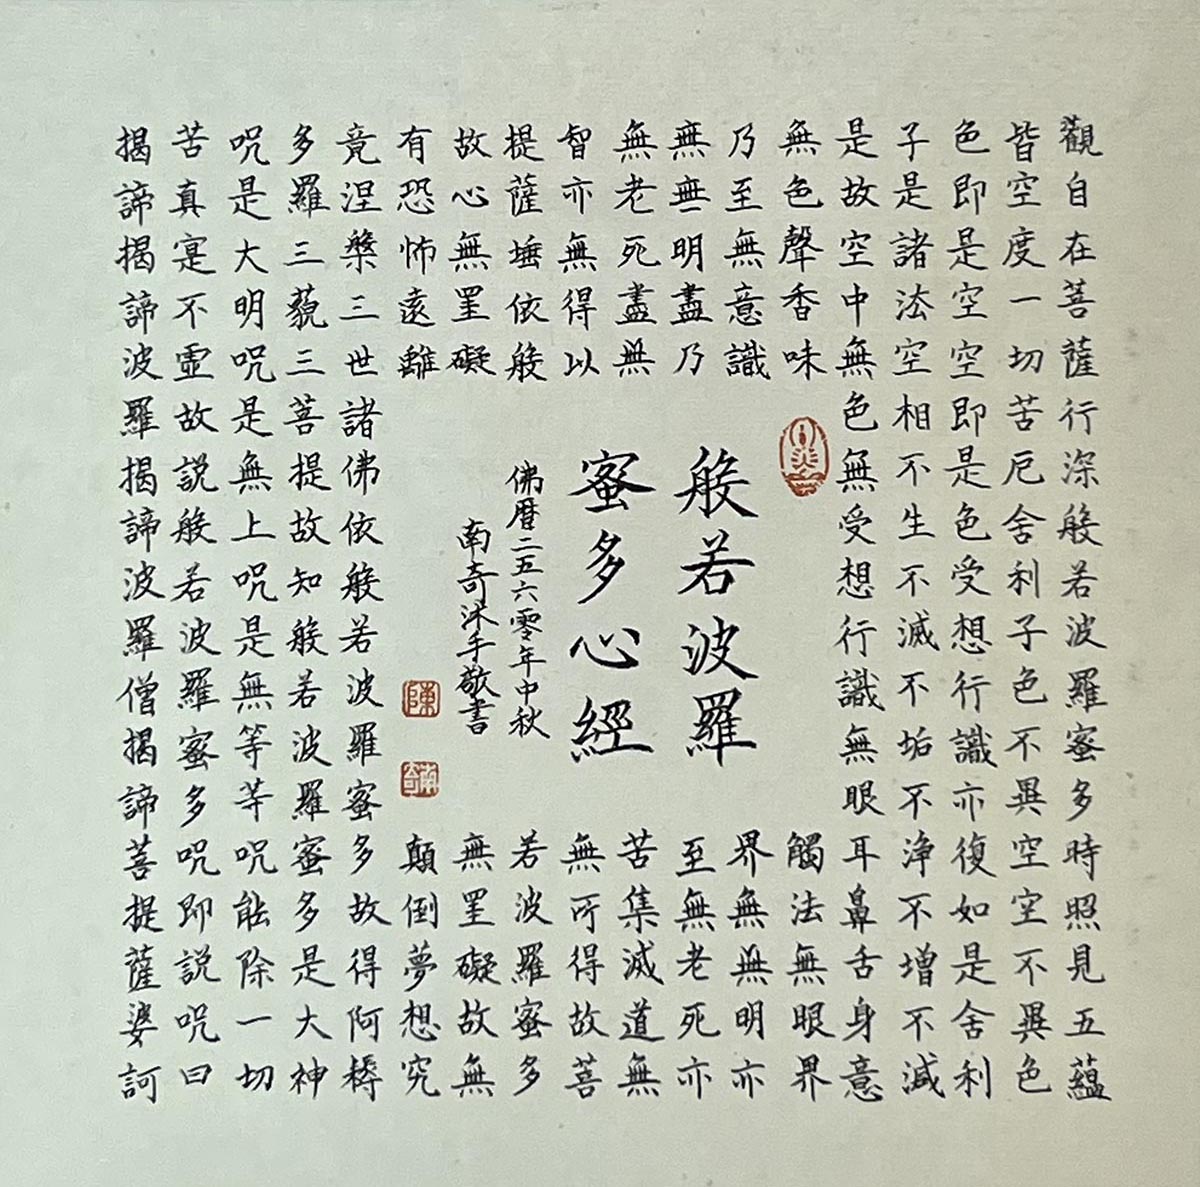 觀自在菩薩行深般若波羅蜜多時照見五蘊
皆空度一切苦厄舍利子色不異空空不異色
色即是空空即是色受想行識亦復如是舍利
子是諸法空相不生不滅不垢不浄不增不減
是故空中無色無受想行識無眼耳鼻舌身意
無色聲香味
觸法無眼界
乃至無意識
界無無明亦
無無明盡乃
至無老死亦
無老死盡無
苦集滅道無
智亦無得以
無所得故菩
提薩埵依般
若波羅蜜多
故心無罣礙
無罣礙故無
有恐怖遠離
顛倒夢想究
竟涅槃三世諸佛依般若波羅蜜多故得阿耨
多羅三藐三菩提故知般若波羅蜜多是大神
呪是大明呪是無上呪是無等等呪能除一切
苦真寔不虛故説般若波羅蜜多呪即説呪曰
揭諦揭諦波羅揭諦波羅僧揭諦菩提薩婆訶
般若波羅
蜜多心經
佛曆二五六零年中秋
南奇沐手敬書
陳
南奇